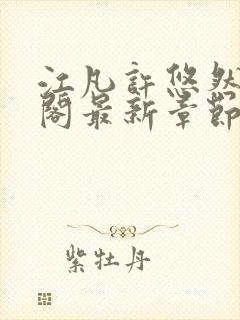 江凡許悠然
閣最新章節
紫牡丹